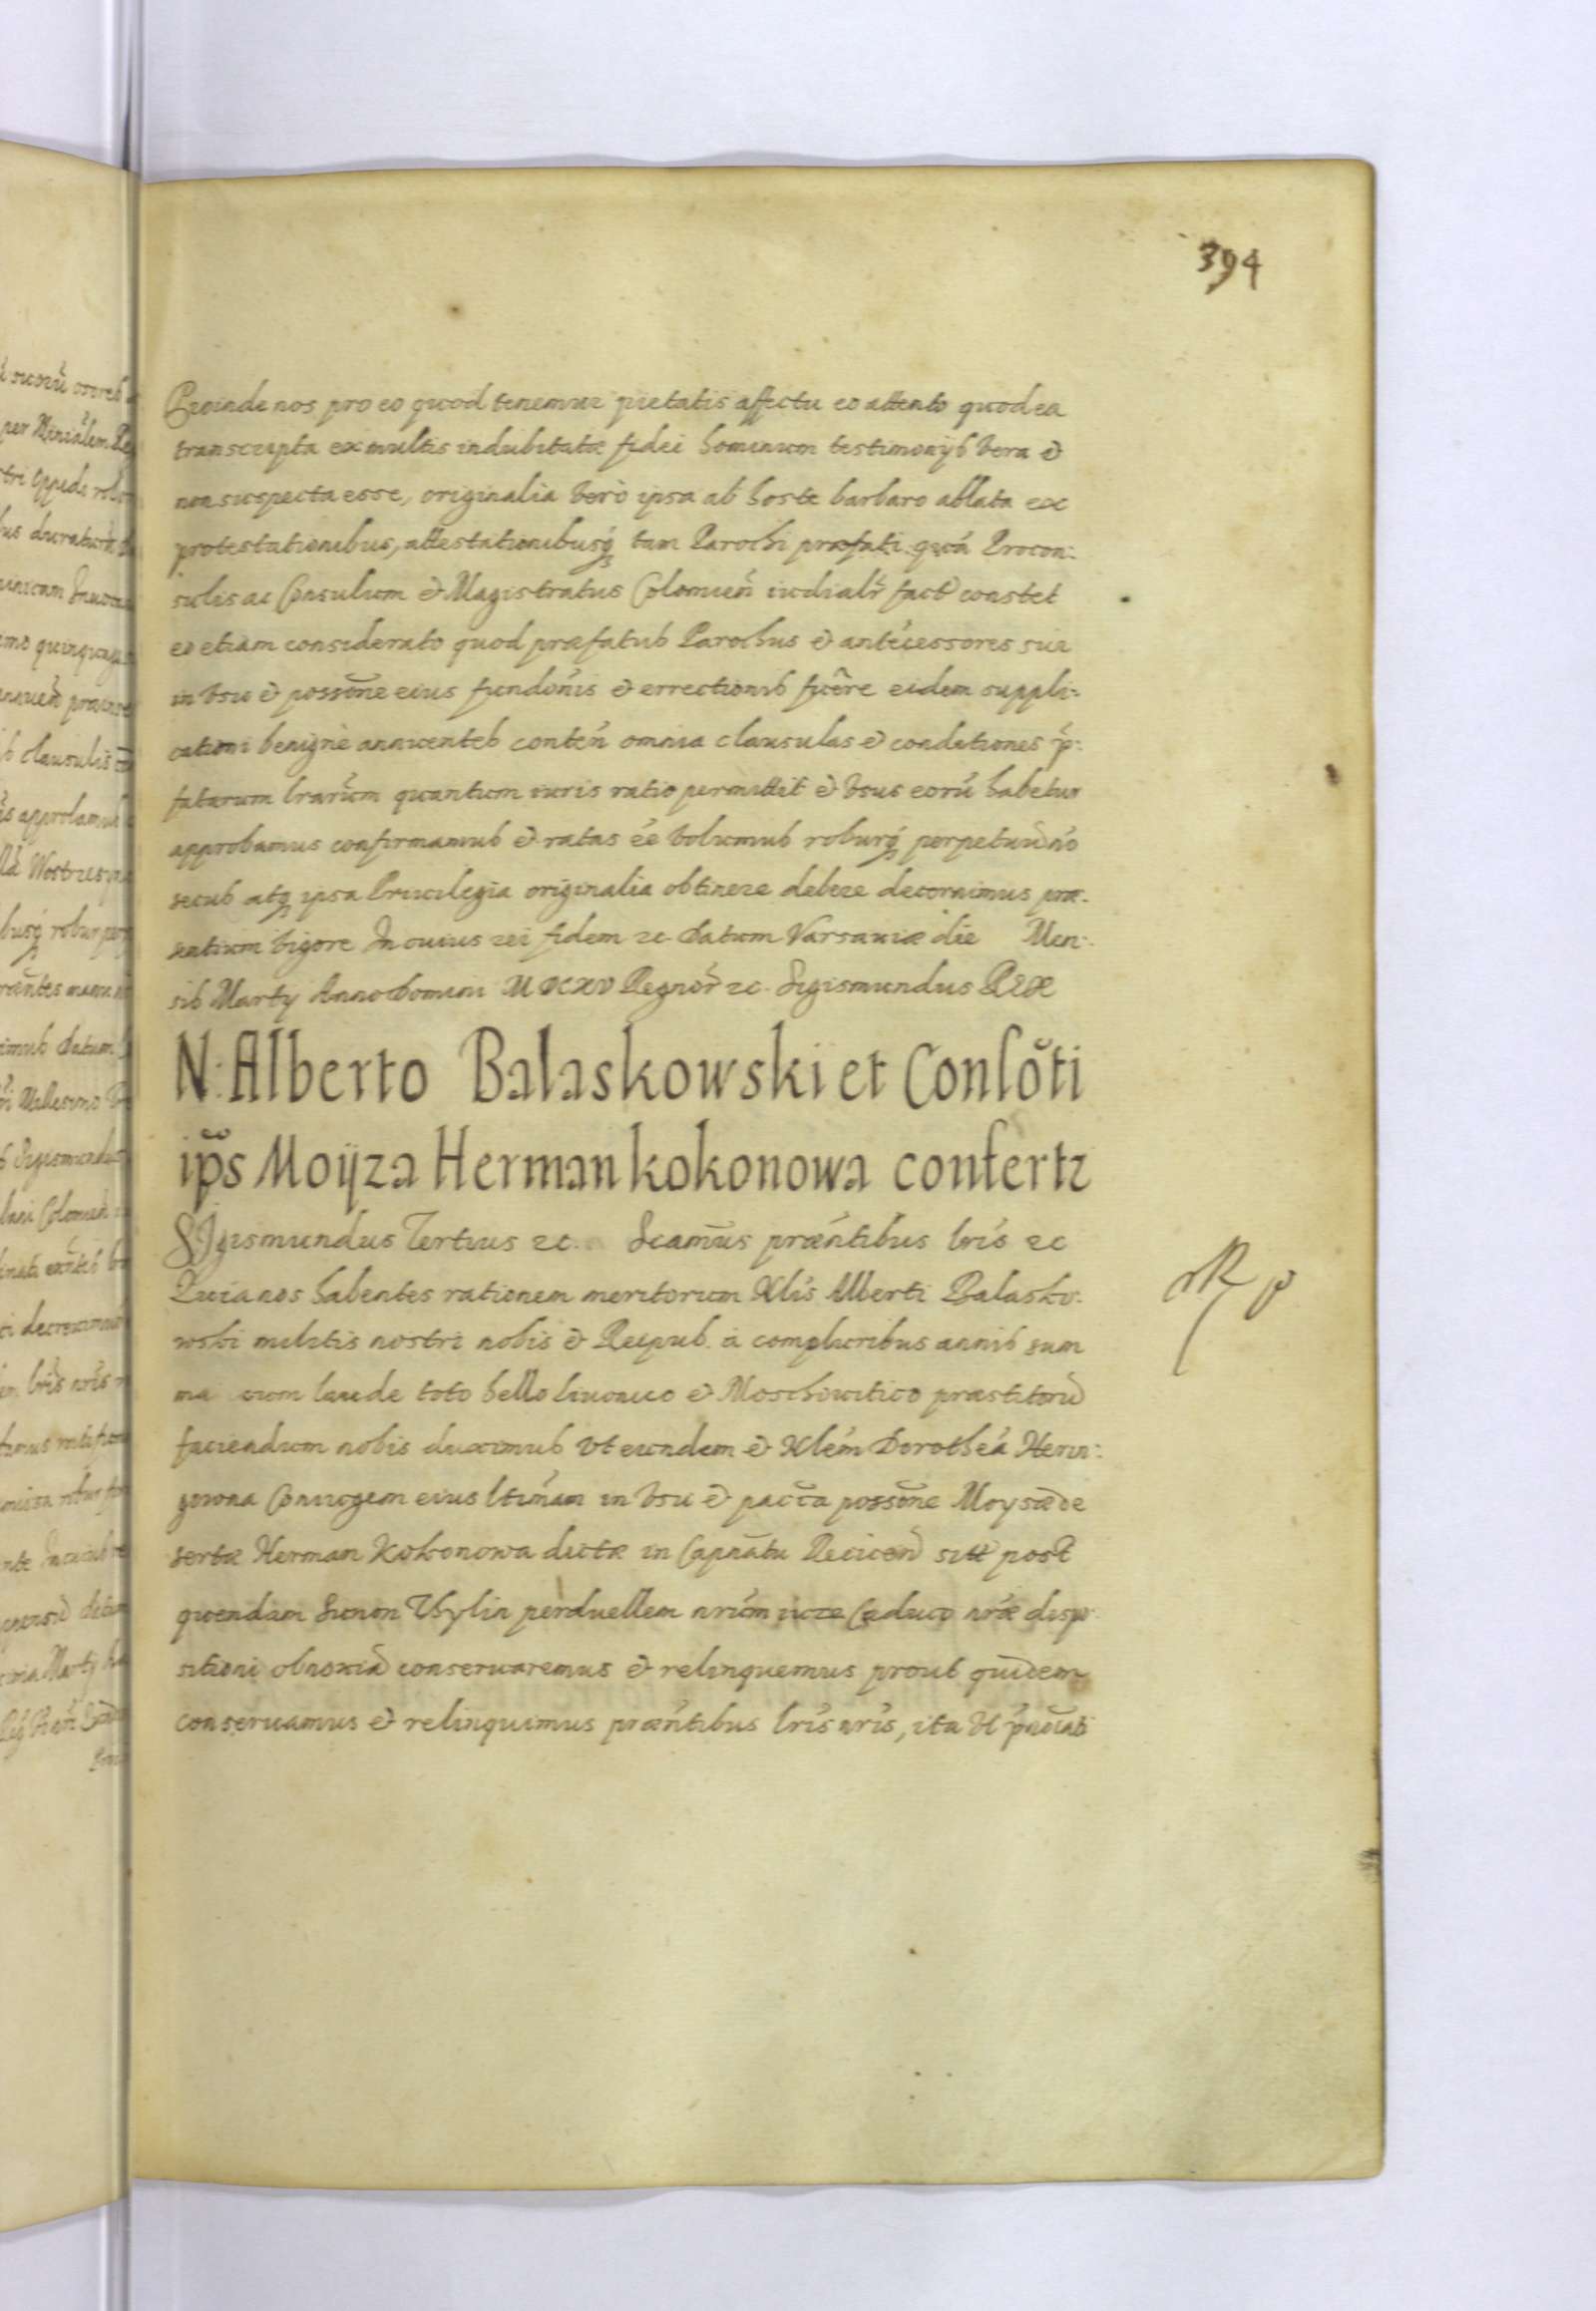 394
Proinde nos pro eo quod tenemur pietatis affectu eo attento quod ea
transcripta ex multis indubitatæ fidei hominum testimonijs vera et
non suspecta esse, originalia verò ipsa ab hoste barbaro ablata ex
protestationibus, attestationibusq; tam Parochi præfati quā Procon:
sulis ac Consulum et Magistratus Colomien̄ iudialr̄ fact constet
eo etiam considerato quod præfatus Parochus et antecessores sui
in vsu et possōne eius fundōnis et errectionis fuēre eidem suppli:
cationi benignè annuentes conten̄ omnia clausulas et conditiones p̄:
fatarum lrarūm quantum iuris ratio permittit et vsus eorū habetur
approbamus confirmamus et ratas ēe volumus roburq; perpetuū nō
secus atq; ipsa Priuilegia originalia obtinere debere decernimus præ:
sentium vigore In cuius rei fidem etc. Datum Varsauiæ die Men:
sis Martÿ Anno Domini MDCXV Regnor̄ etc. Sigismundus Rex
N: Alberto Balaskowski et Consōti
ip̄s Moÿza Herman kokonowa confertr
SIgismundus Tertius etc. Scamūs præn̄tibus lrīs etc
Quia nos habentes rationem meritorum Nlis Alberti Balasko:
wski militis nostri nobis et Reipub. à compluribus annis sum
ma cum laude toto bello liuonico et Moschouitico præstitorū
faciendum nobis duximus vt eundem et Nlēm Dorotheā Herin:
gowna Coniugem eius ltīmam in vsu et pacc̄a possōne Moysæ de
sertæ Herman Kokonowa dictæ in Capnātu sitt post
quendam Simon Thylin perduellem nrūm iure Caduco nrǣ dispo
sitioni obnoxiā conseruaremus et relinquemus prout quidem
conseruamus et relinquimus præn̄tibus lrīs nrīs, ita vt p̄nōiati